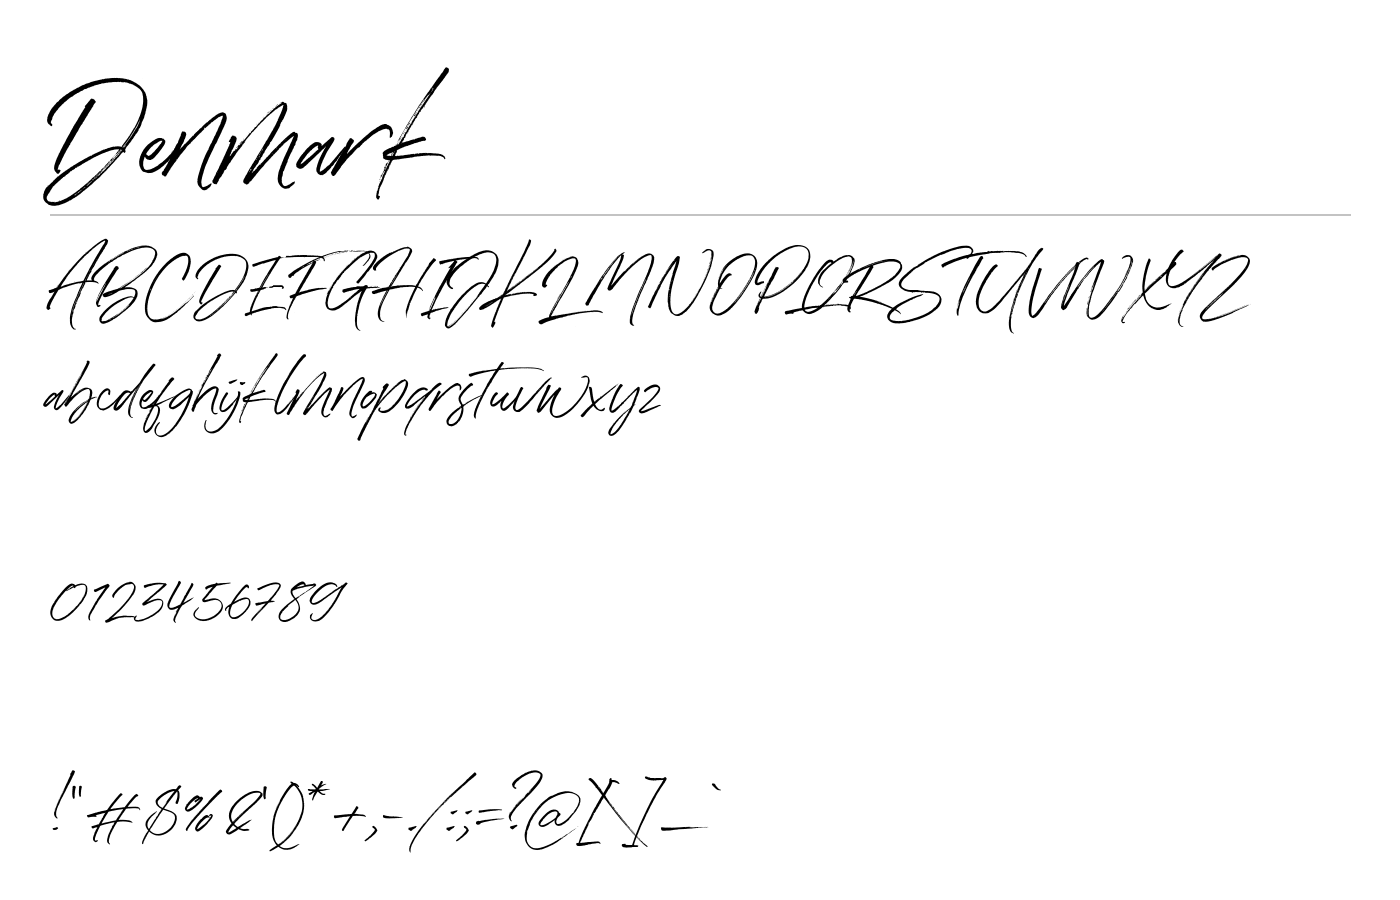 Denmark
ABCDEFGHIJKLMNOPQRSTUVWXYZ
abcdefghijklmnopqrstuvwxyz
0123456789
!"#$%&'()*+,-./:;=?@[\]_`